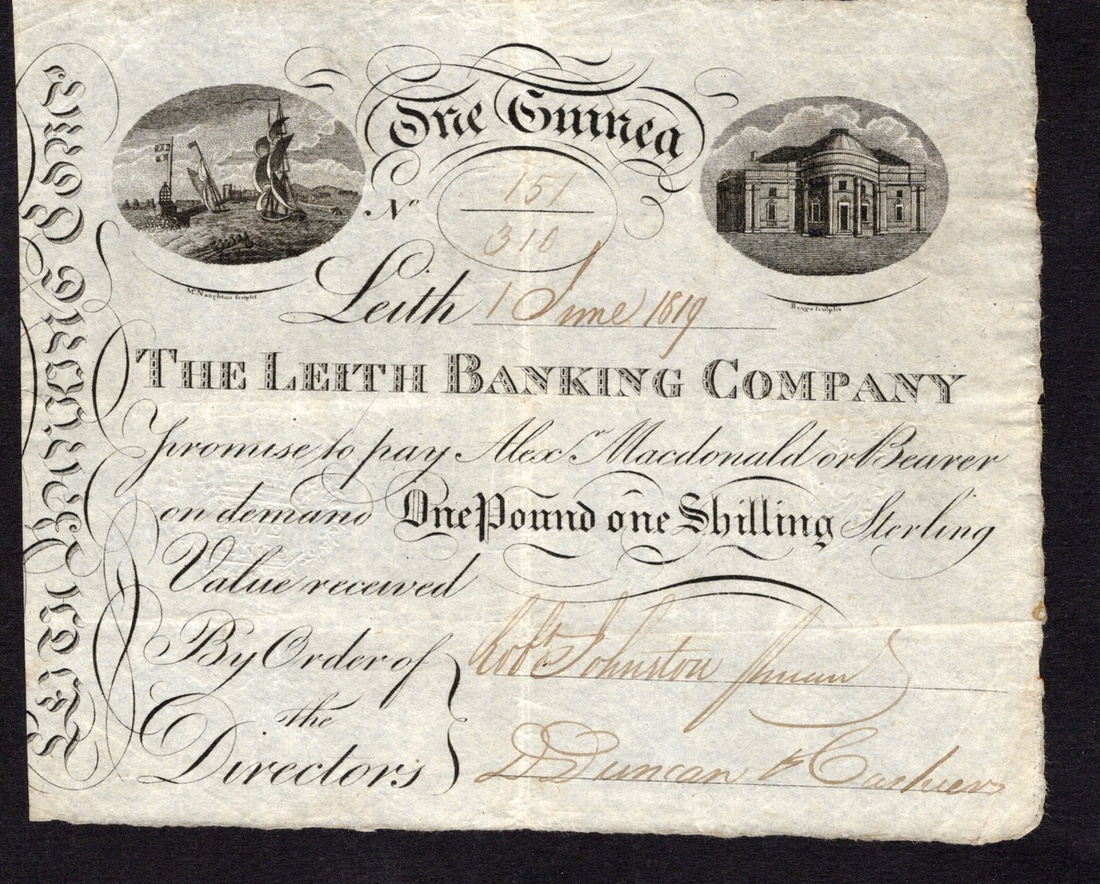 One Guinea
No 151
310
McNaughton Sculpsit
Beugo Sculpsit
Leith 1 June 1819
THE LEITH BANKING COMPANY
promise to pay Alexr Macdonald or Bearer
on demand One Pound one Shilling Sterling
Value received
By Order of
the
Directors
Robt Johnston
D Duncan
Cashier
LEITH BANKING COMPY